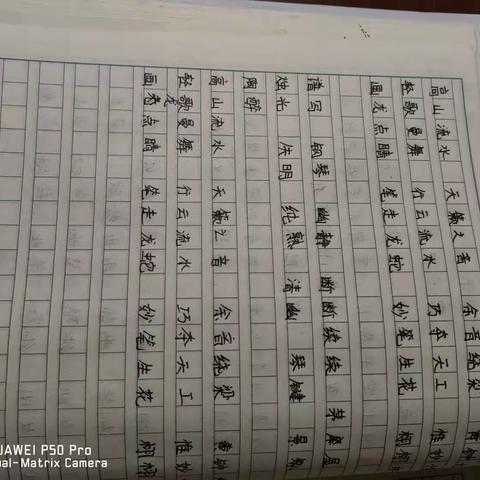 高山流水 天籁之音 余音绕梁
轻歌曼舞 行云流水 巧夺天工 惟妙
画龙点睛 笔走龙蛇 妙笔生花 栩栩
谱写 钢琴 幽静 断断续续 茅屋
烛光 失明 纯熟 清幽 琴键
陶醉
高山流水 天籁之音 余音绕梁
轻歌曼舞 行云流水 巧夺天工 惟妙
画龙点睛 笔走龙蛇 妙笔生花 栩栩
AWEI P50 Pro
ual-Matrix Camera